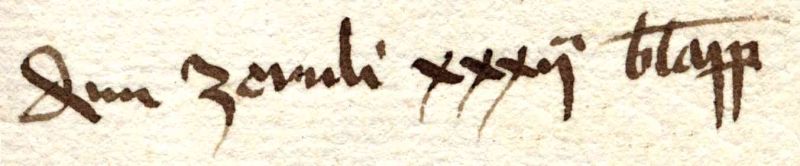 dem zernli xxxij blapp